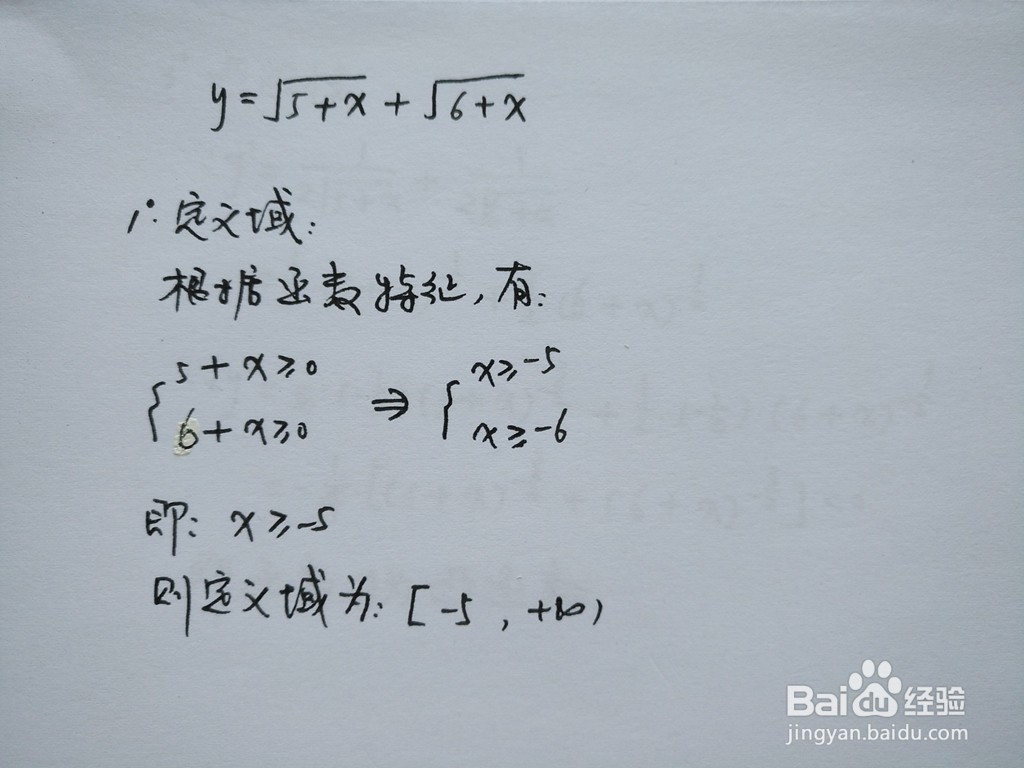 y=√5+x + √6+x
1°.定义域:
根据函数特征,有:
{5+x≥0 ⇒ {x≥-5
6+x≥0 x≥-6
即: x≥-5
则定义域为: [-5 , +∞)
Baidu经验
jingyan.baidu.com